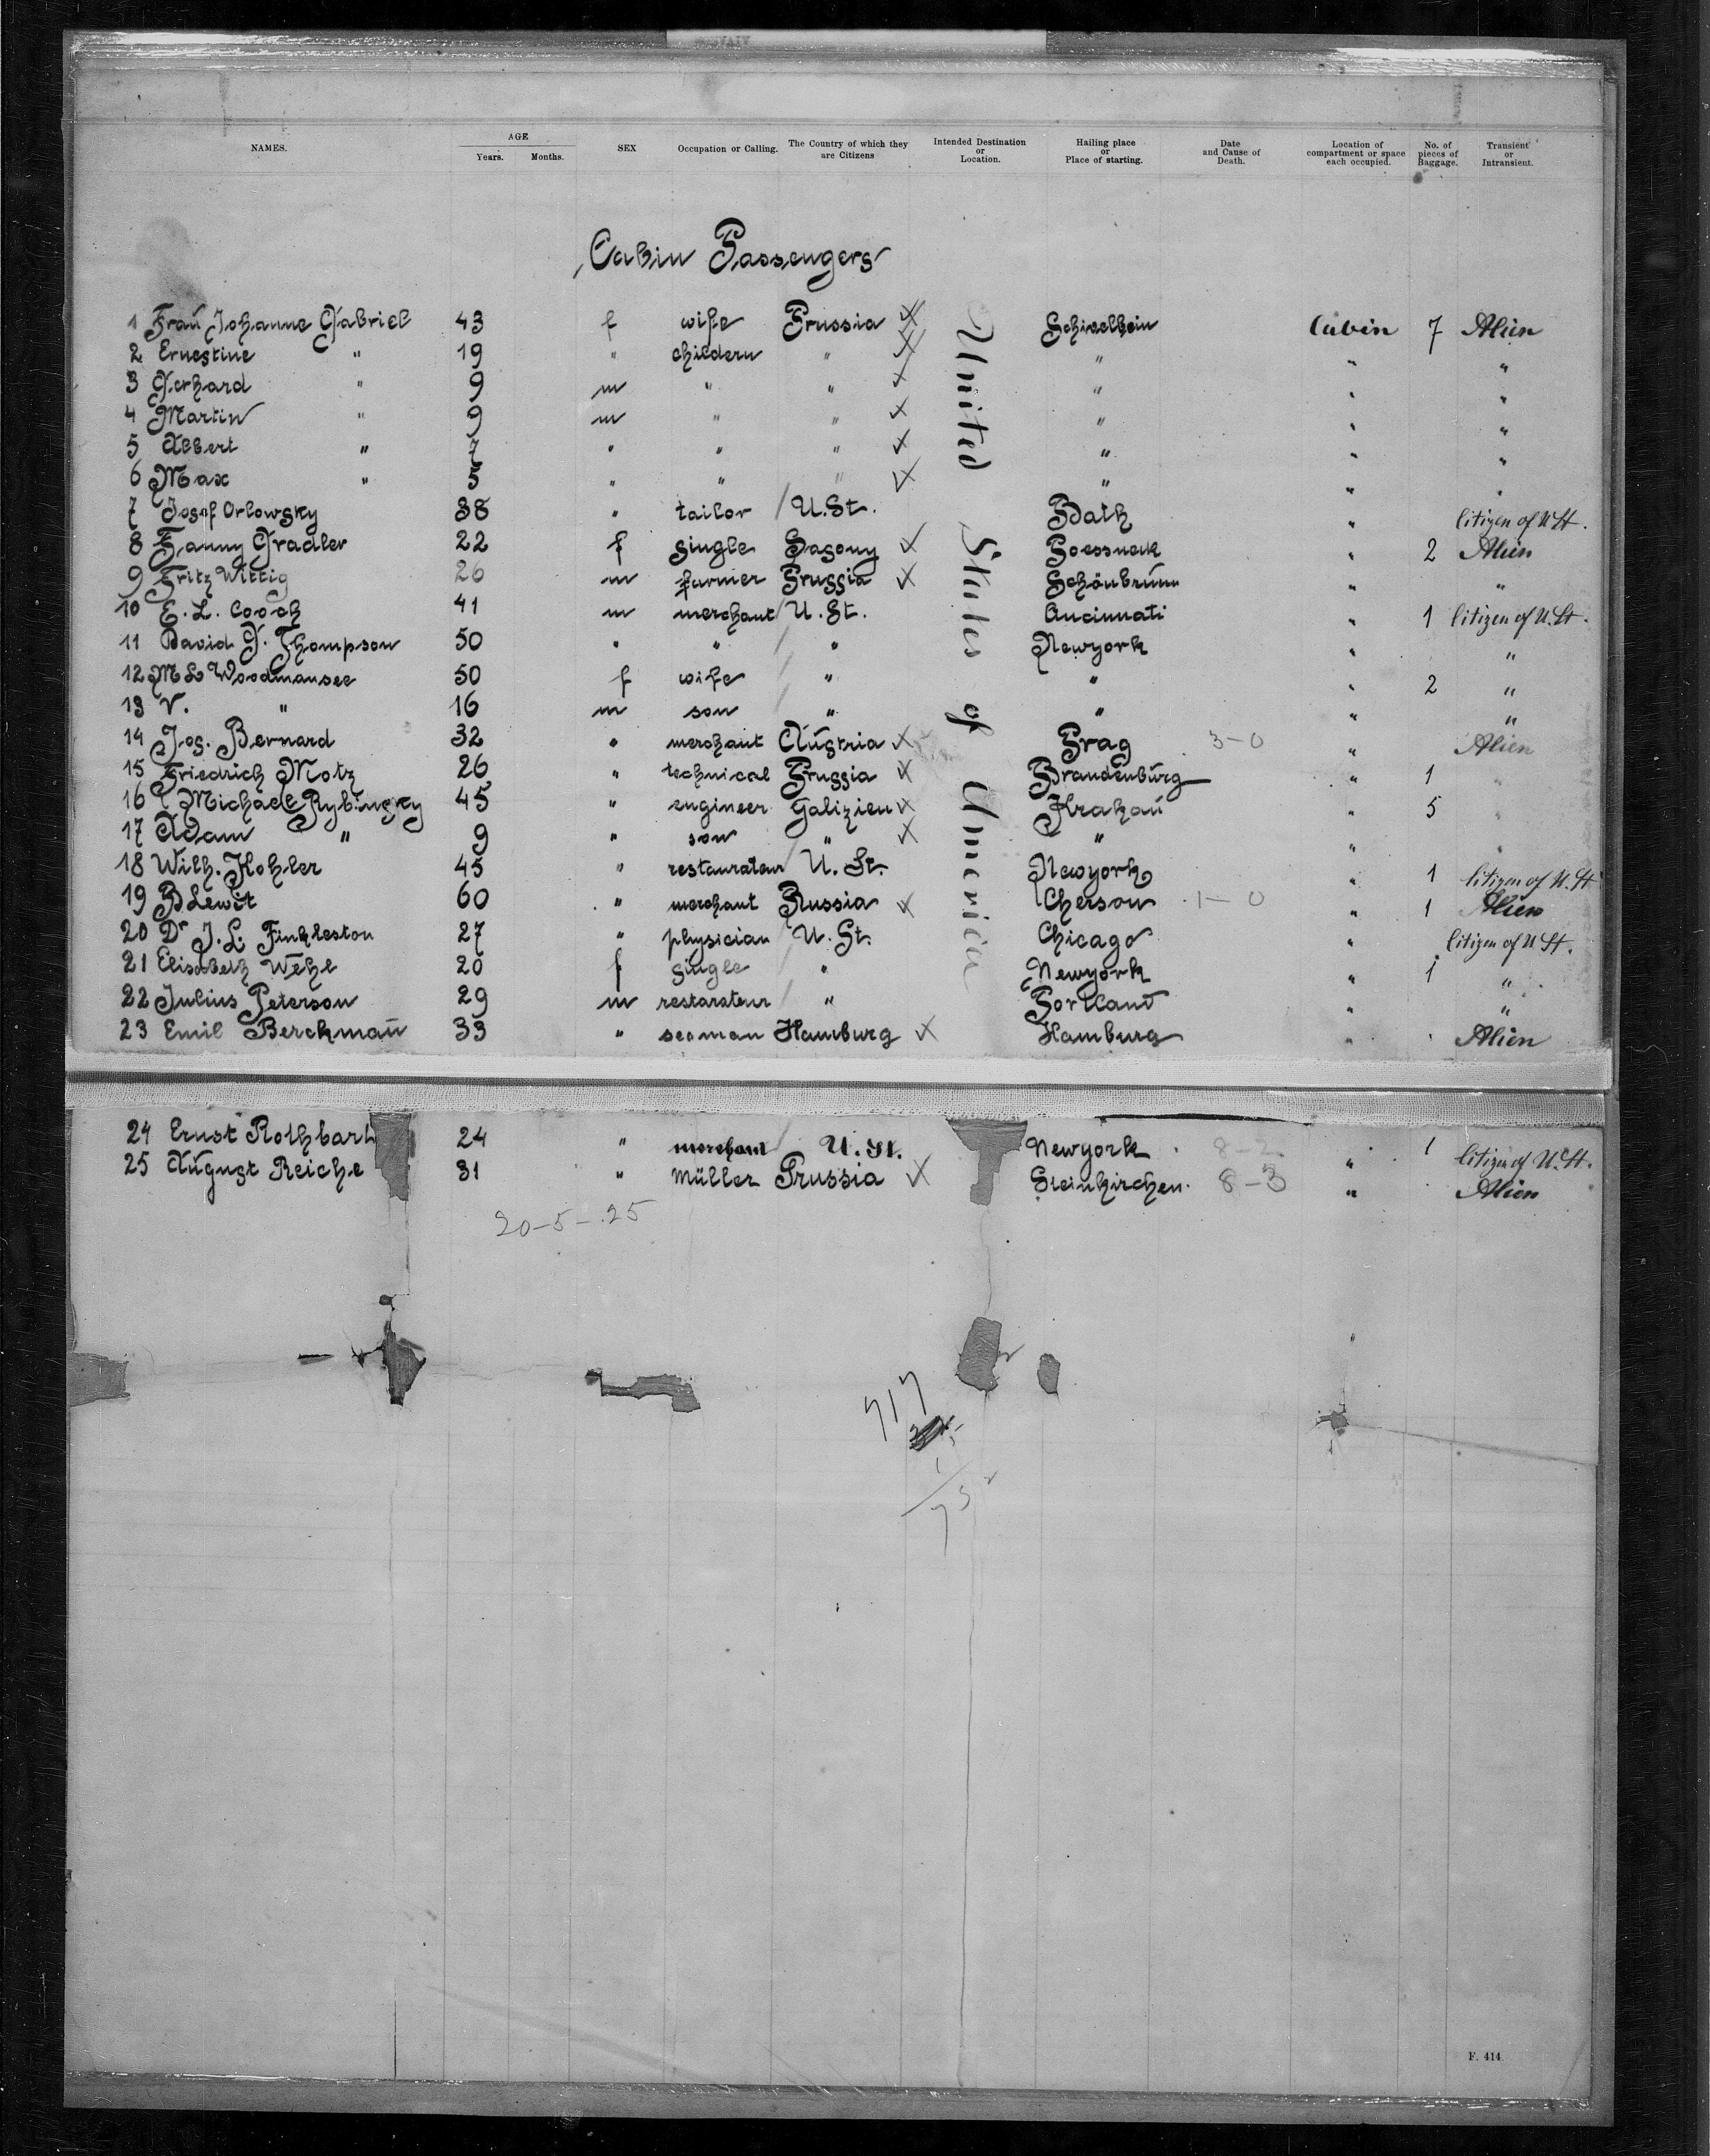 NAMES. AGE Years. Months. SEX Occupation or Calling. The Country of which they are Citizens Intended Destination or Location. Hailing place or Place of starting. Date and Cause of Death. Location of compartment or space each occupied. No. of pieces of Baggage. Transient or Intransient.
Cabin Passengers
1 Frau Johanne Gabriel 43 f wife Prussia Schivelbein Cabin 7 Alien
2 Ernestine " 19 " childern " " " "
3 Gerhard " 9 m " " " " "
4 Martin " 9 m " " " " "
5 Albert " 7 " " " " " "
6 Max " 5 " " " " " "
7 Josef Orlowsky 38 " tailor U.St. Bath " Citizen of U St.
8 Fanny Gradler 22 f single Sagony Poessneck " 2 Alien
9 Fritz Wittig 26 m farmer Prussia Schönbrunn " "
10 E. L. Cooch 41 m merchant U. St. Cincinnati " 1 Citizen of U. St.
11 David G. Thompson 50 " " " Newyork " "
12 M L Woodmansee 50 f wife " " " 2 "
13 V. " 16 m son " " " "
14 Jos. Bernard 32 " merchant Austria Prag 3-0 " Alien
15 Friedrich Motz 26 " technical Prussia Brandenburg " 1 "
16 Michael Rybinsky 45 " engineer Galizien Krakau " 5 "
17 Adam " 9 " son " " " "
18 Wilh. Kohler 45 " restaurateur U. St. Newyork " 1 Citizen of U. St
19 B Lewit 60 " merchant Russia Cherson 1-0 " 1 Alien
20 Dr J. L. Finkleston 27 " physician U. St. Chicago " Citizen of U St.
21 Elisabeth Wehl 20 f single " Newyork " 1 "
22 Julius Peterson 29 m restarateur " Portland " "
23 Emil Berckmann 33 " seaman Hamburg Hamburg " Alien
United States of America
24 Ernst Rothbarth 24 " merchant U. St. Newyork 8-2 " 1 Citizen of U. St.
25 August Reiche 31 " Müller Prussia Steinkirchen 8-3 " Alien
20-5-25
717
752
F. 414